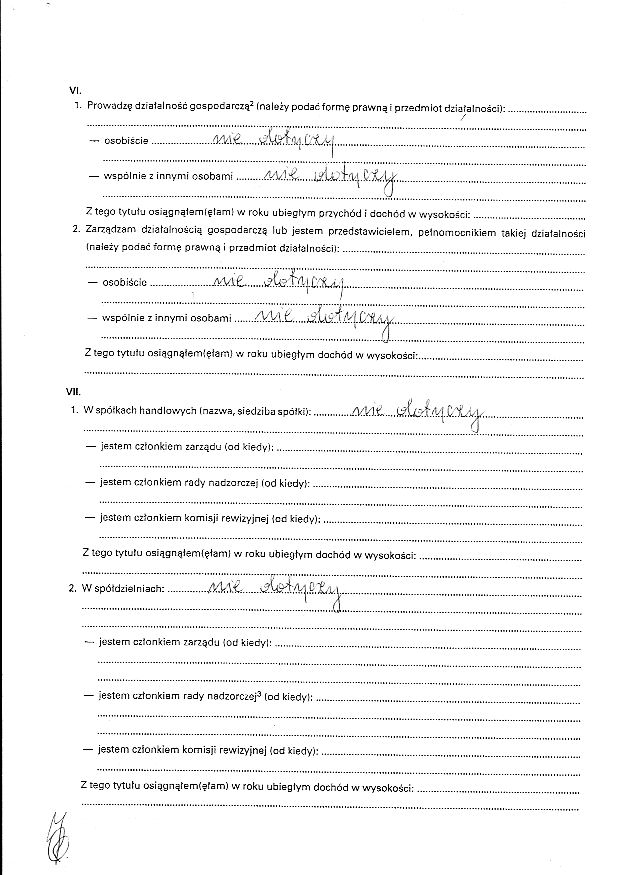 VI.
1. Prowadzę działalność gospodarczą² (należy podać formę prawną i przedmiot działalności):
— osobiście nie dotyczy
— wspólnie z innymi osobami nie dotyczy
Z tego tytułu osiągnąłem(ęłam) w roku ubiegłym przychód i dochód w wysokości:
2. Zarządzam działalnością gospodarczą lub jestem przedstawicielem, pełnomocnikiem takiej działalności
(należy podać formę prawną i przedmiot działalności):
— osobiście nie dotyczy
— wspólnie z innymi osobami nie dotyczy
Z tego tytułu osiągnąłem(ęłam) w roku ubiegłym dochód w wysokości:
VII.
1. W spółkach handlowych (nazwa, siedziba spółki): nie dotyczy
— jestem członkiem zarządu (od kiedy):
— jestem członkiem rady nadzorczej (od kiedy):
— jestem członkiem komisji rewizyjnej (od kiedy):
Z tego tytułu osiągnąłem(ęłam) w roku ubiegłym dochód w wysokości:
2. W spółdzielniach: nie dotyczy
— jestem członkiem zarządu (od kiedy):
— jestem członkiem rady nadzorczej³ (od kiedy):
— jestem członkiem komisji rewizyjnej (od kiedy):
Z tego tytułu osiągnąłem(ęłam) w roku ubiegłym dochód w wysokości: